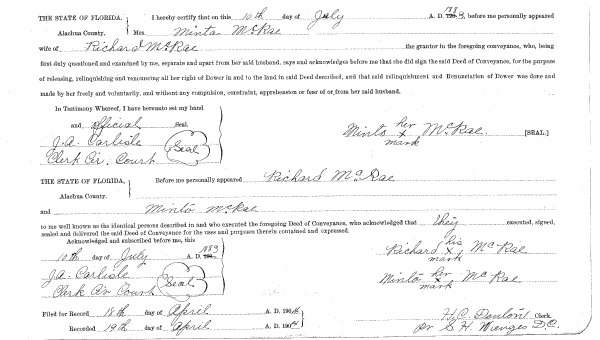 THE STATE OF FLORIDA, I hereby certify that on this 10th day of July A. D. 1889, before me personally appeared
Alachua County. Mrs. Minta McRae
wife of Richard McRae the grantor in the foregoing conveyance, who, being
first duly questioned and examined by me, separate and apart from her said husband, says and acknowledges before me that she did sign the said Deed of Conveyance, for the purpose
of releasing, relinquishing and renouncing all her right of Dower in and to the land in said Deed described, and that said relinquishment and Renunciation of Dower was done and
made by her freely and voluntarily, and without any compulsion, constraint, apprehension or fear of or from her said husband.
In Testimony Whereof, I have hereunto set my hand
and official Seal.
J.A. Carlisle Seal
Clerk Cir. Court
her
Minto x McRae [SEAL.]
mark
THE STATE OF FLORIDA, Before me personally appeared Richard McRae
Alachua County.
and Minto McRae
to me well known as the identical persons described in and who executed the foregoing Deed of Conveyance, who acknowledged that they executed, signed,
sealed and delivered the said Deed of Conveyance for the uses and purposes therein contained and expressed.
Acknowledged and subscribed before me, this
10th day of July A. D. 1889
J.A. Carlisle Seal
Clerk Cir Court
his
Richard x McRae
mark
her
Minto x McRae
mark
Filed for Record 18th day of April A. D. 190
Recorded 19th day of April A. D. 190
H.C. Denton Clerk.
pr S.H. Wienges D.C.